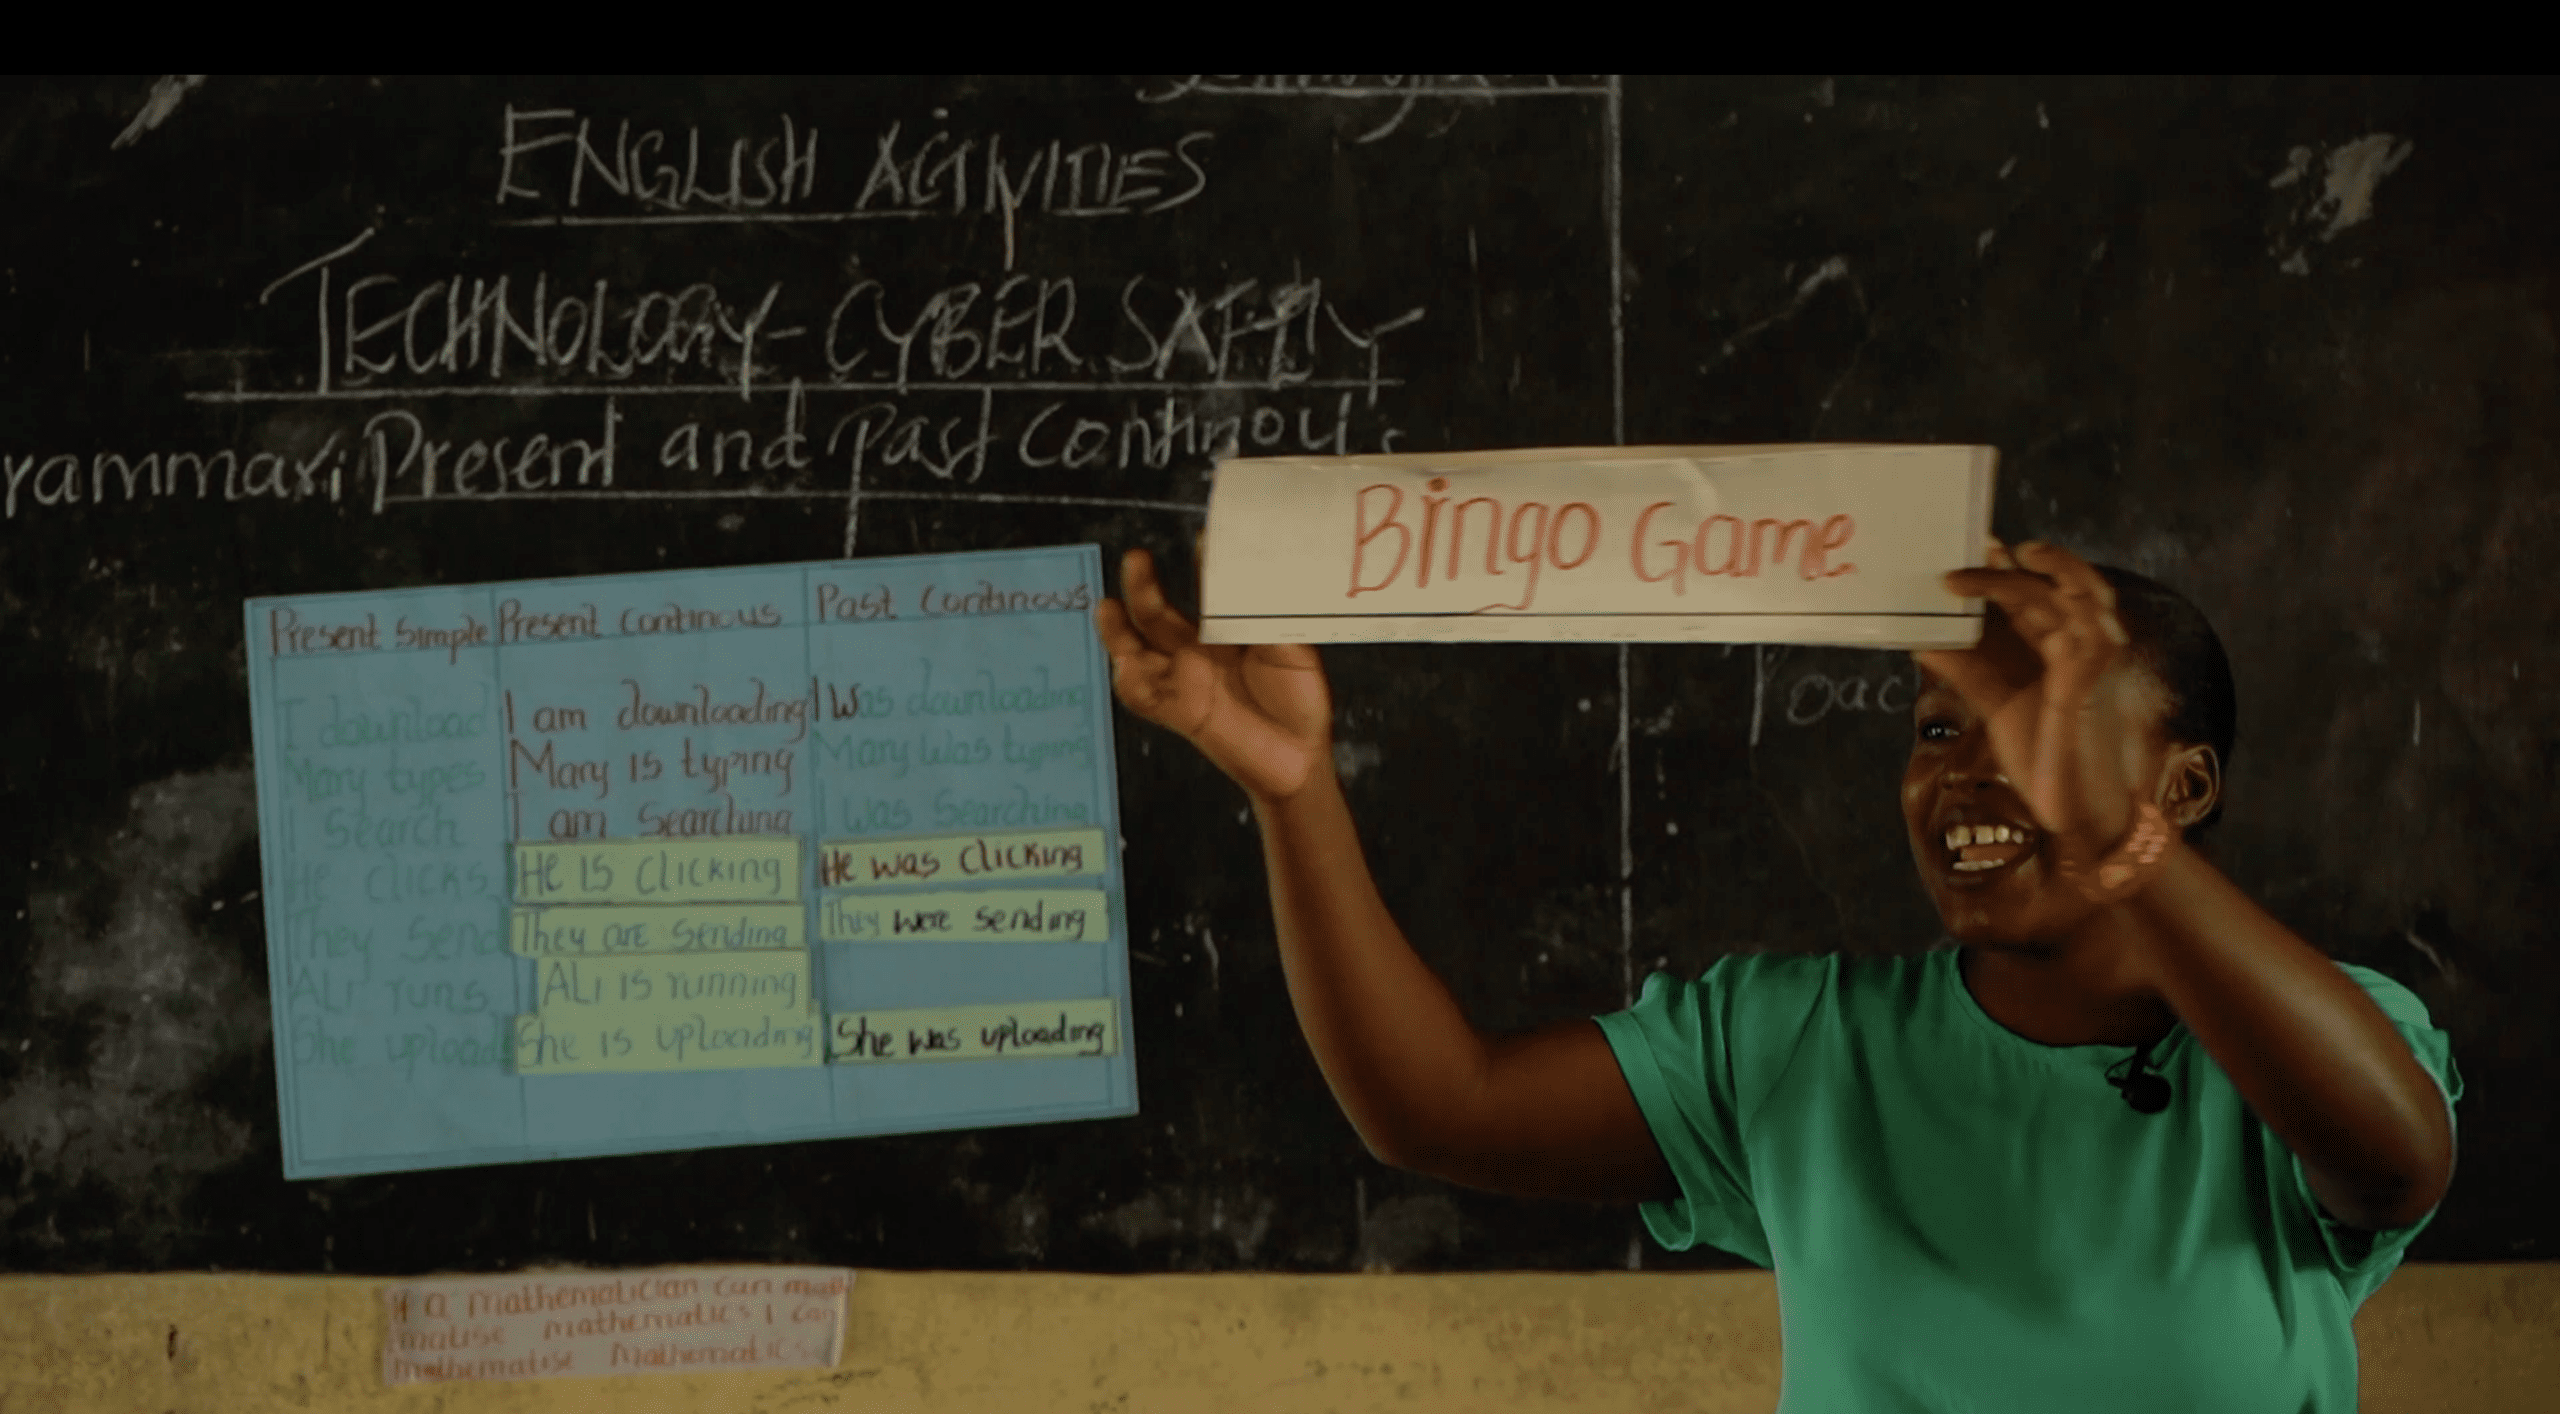 ENGLISH ACTIVITIES
TECHNOLOGY-CYBER SAFETY
rammar: Present and past Continous
Bingo Game
Present Simple Present Continous Past Continous
I download I am downloading I was downloading
Mary types Mary is typing Mary was typing
I Search I am Searching I was Searching
He clicks He is clicking He was clicking
They send They are sending They were sending
ALi runs ALi is running
She upload She is uploading She was uploading
If a mathematician can
matise mathematics I can
mathematise Mathematics